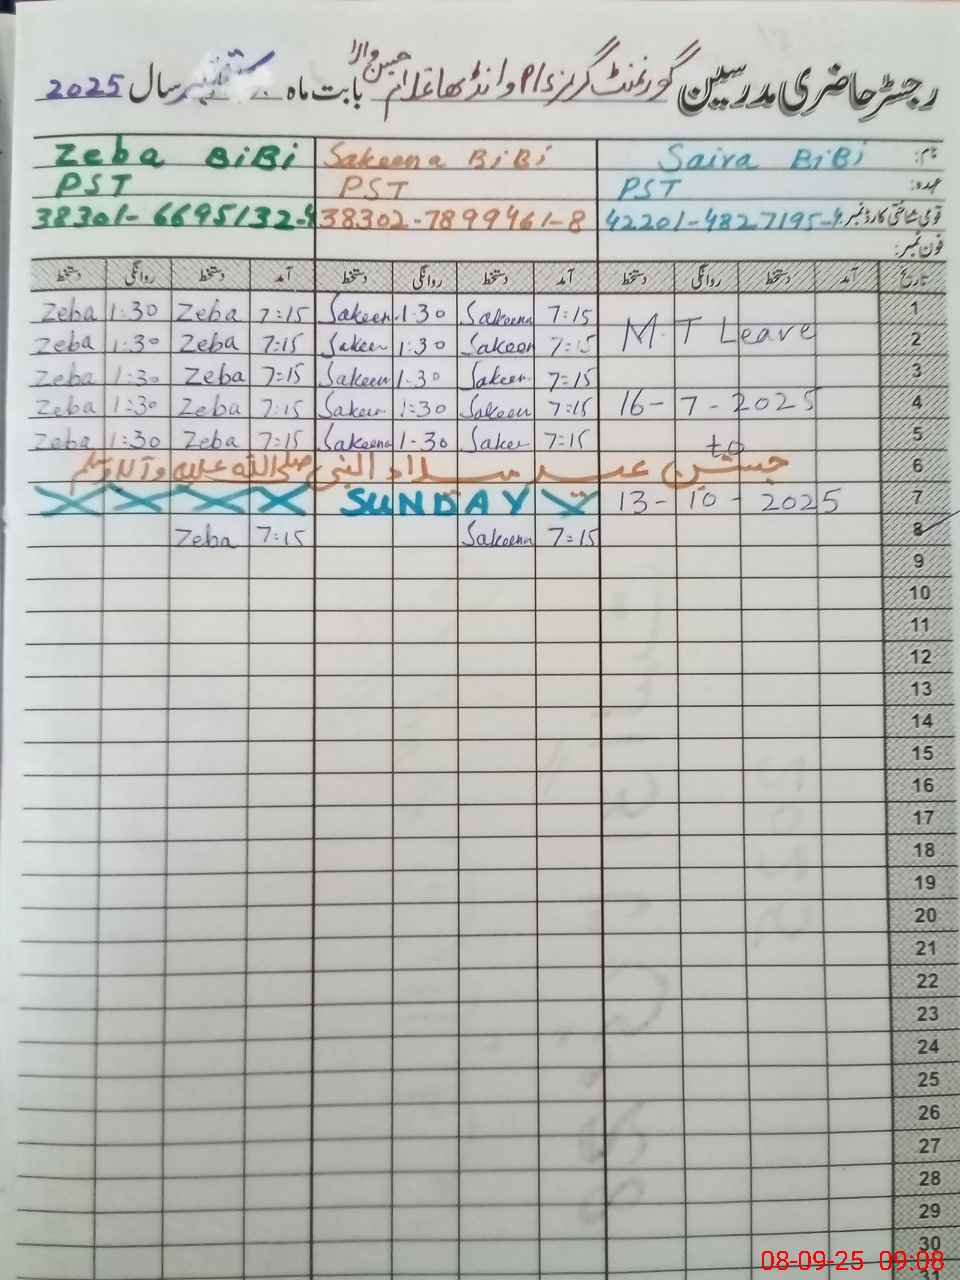 رجسٹر حاضری مدرسین گورنمنٹ گرلز P/S وانڈھا غلام حسن والا بابت ماہ ستمبر سال 2025
نام: Saira BiBi Sakeena BiBi Zeba BiBi
عہدہ: PST PST PST
قومی شناختی کارڈ نمبر: 42201-4827195-4 38302-7899461-8 38301-6695132-4
فون نمبر:
تاریخ آمد دستخط روانگی دستخط آمد دستخط روانگی دستخط آمد دستخط روانگی دستخط
Zeba 1:30 Zeba 7:15 Sakeen 1-30 Sakeena 7:15 1
Zeba 1:30 Zeba 7:15 Sakeen 1:30 Sakeen 7:15 M.T Leave 2
Zeba 1:30 Zeba 7:15 Sakeen 1-30 Sakeen 7=15 3
Zeba 1:30 Zeba 7:15 Sakeen 1:30 Sakeen 7:15 16-7-2025 4
Zeba 1:30 Zeba 7:15 Sakeena 1-30 Sakee 7:15 to 5
جشن عید میلاد النبی صلی اللہ علیہ وآلہ وسلم 6
SUNDAY 13-10-2025 7
Zeba 7:15 Sakeena 7:15 8
9
10
11
12
13
14
15
16
17
18
19
20
21
22
23
24
25
26
27
28
29
30
31
08-09-25 09:08